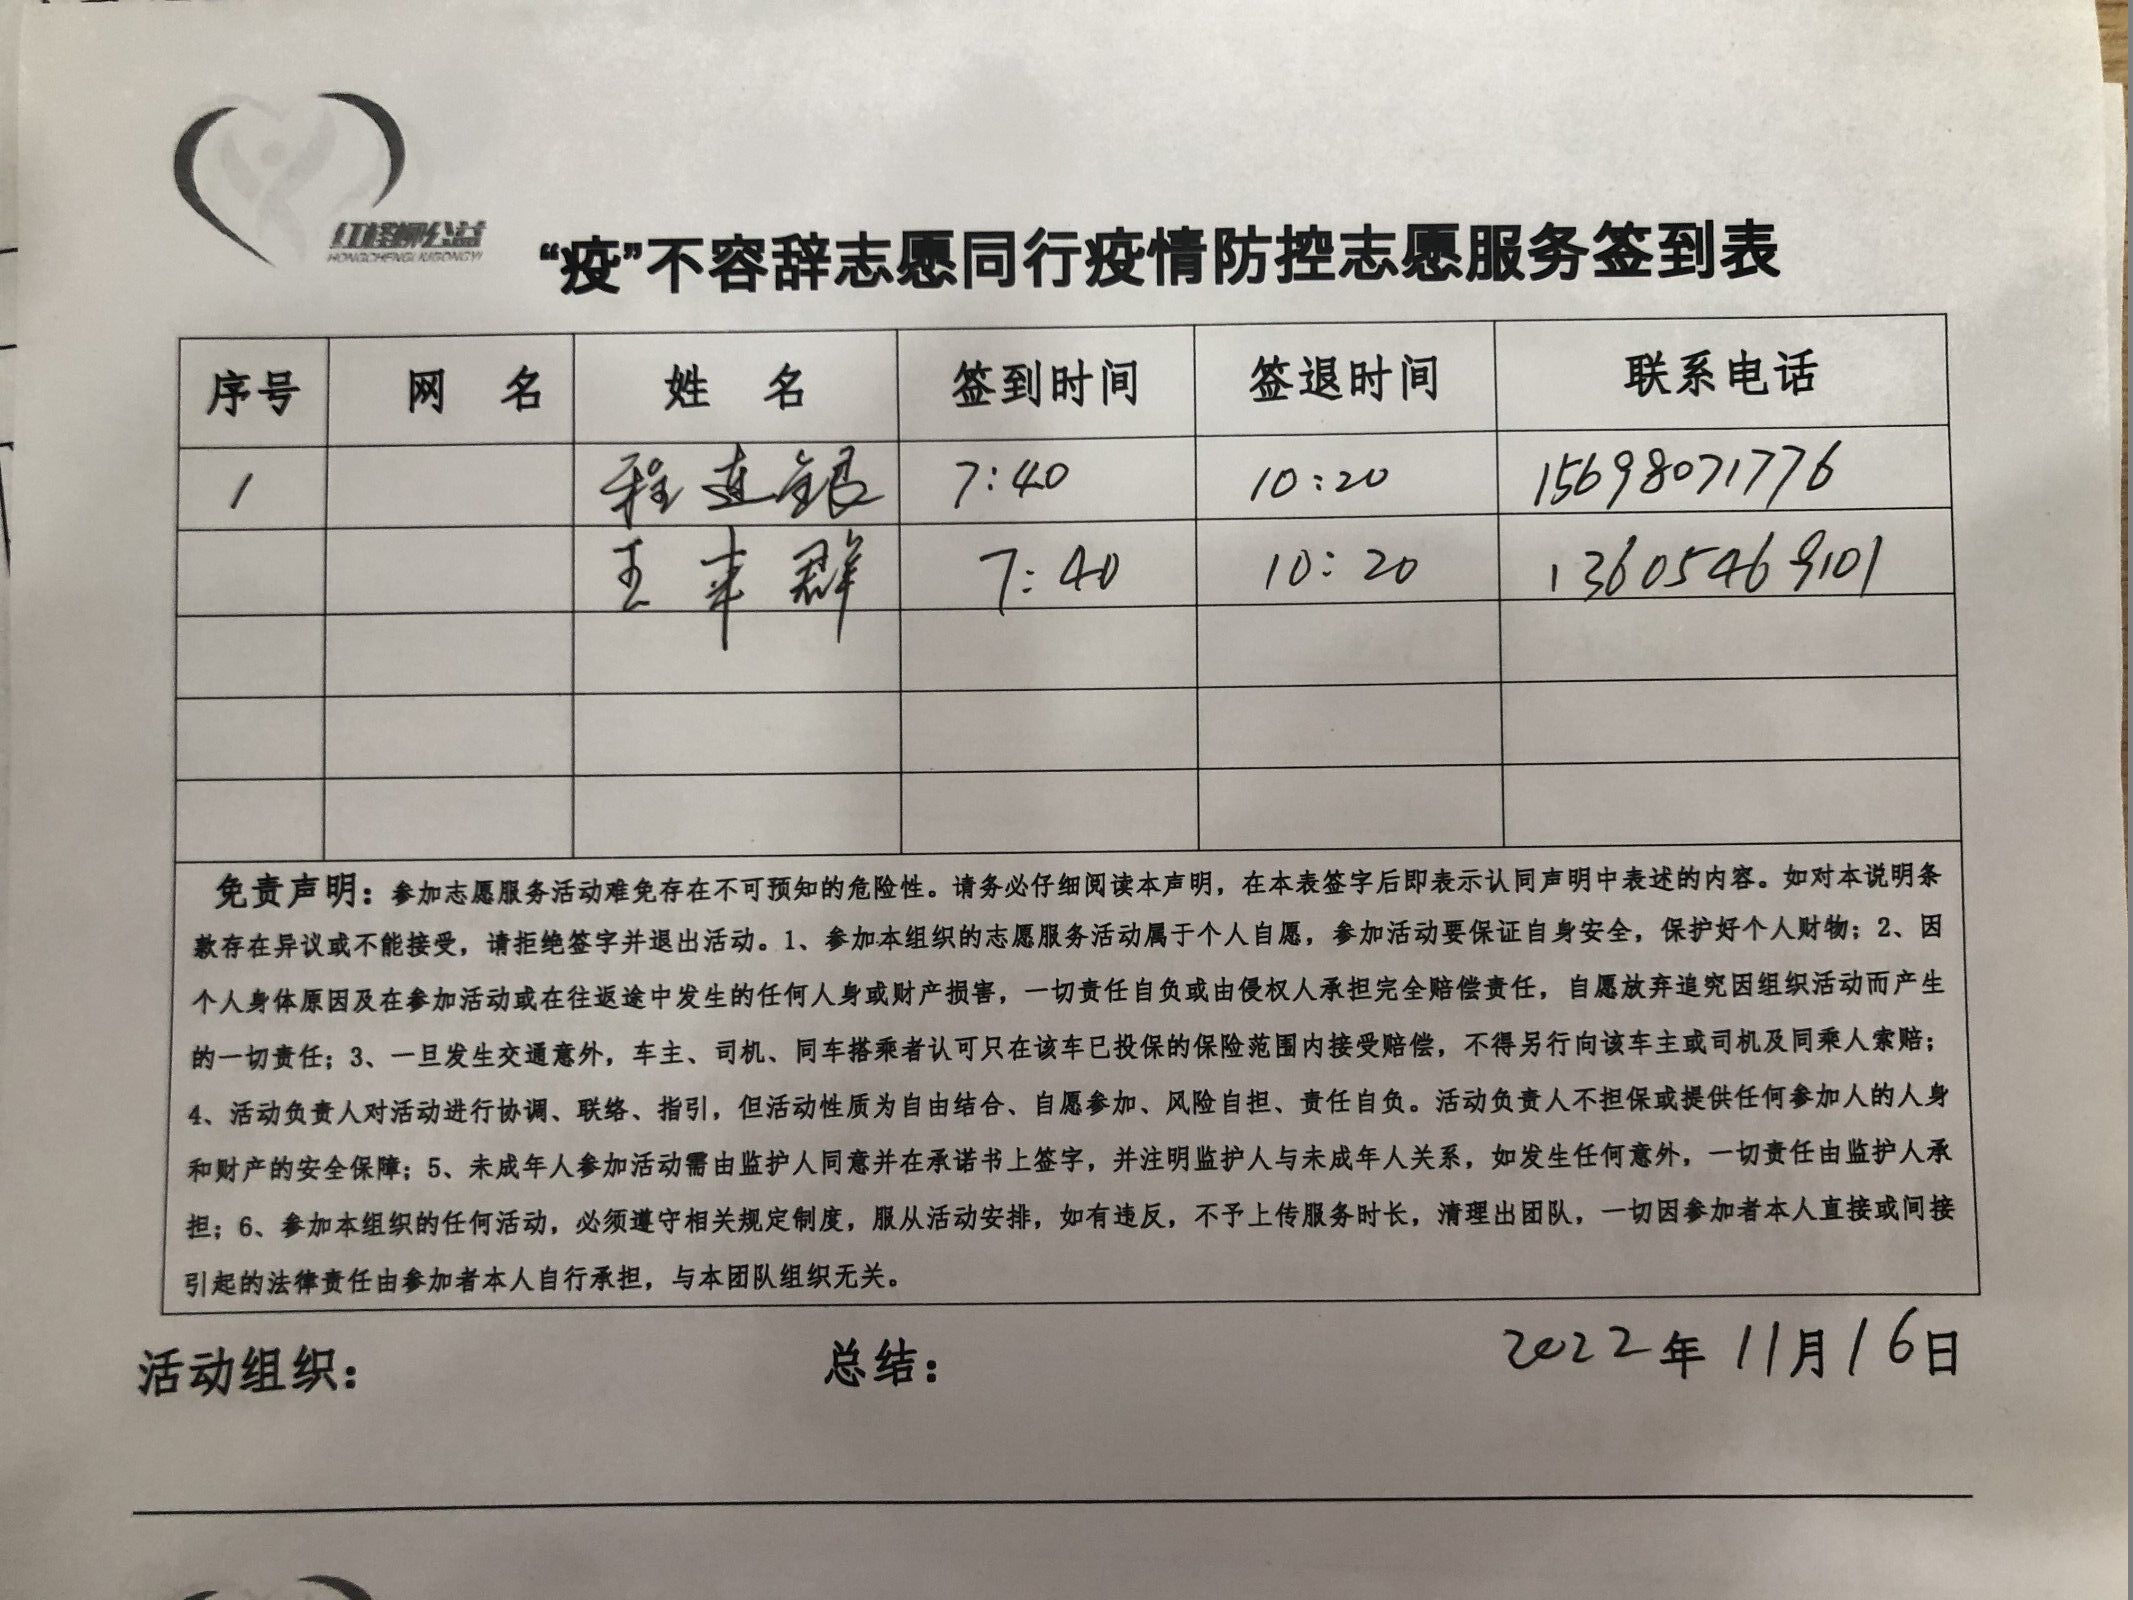 红柽柳公益
HONGCHENGLIUGONGYI
“疫”不容辞志愿同行疫情防控志愿服务签到表
序号 网 名 姓 名 签到时间 签退时间 联系电话
1 程连银 7:40 10:20 15698071776
王来群 7:40 10:20 13605469101
免责声明：参加志愿服务活动难免存在不可预知的危险性。请务必仔细阅读本声明，在本表签字后即表示认同声明中表述的内容。如对本说明条
款存在异议或不能接受，请拒绝签字并退出活动。1、参加本组织的志愿服务活动属于个人自愿，参加活动要保证自身安全，保护好个人财物；2、因
个人身体原因及在参加活动或在往返途中发生的任何人身或财产损害，一切责任自负或由侵权人承担完全赔偿责任，自愿放弃追究因组织活动而产生
的一切责任；3、一旦发生交通意外，车主、司机、同车搭乘者认可只在该车已投保的保险范围内接受赔偿，不得另行向该车主或司机及同乘人索赔；
4、活动负责人对活动进行协调、联络、指引，但活动性质为自由结合、自愿参加、风险自担、责任自负。活动负责人不担保或提供任何参加人的人身
和财产的安全保障；5、未成年人参加活动需由监护人同意并在承诺书上签字，并注明监护人与未成年人关系，如发生任何意外，一切责任由监护人承
担；6、参加本组织的任何活动，必须遵守相关规定制度，服从活动安排，如有违反，不予上传服务时长，清理出团队，一切因参加者本人直接或间接
引起的法律责任由参加者本人自行承担，与本团队组织无关。
活动组织： 总结： 2022年11月16日